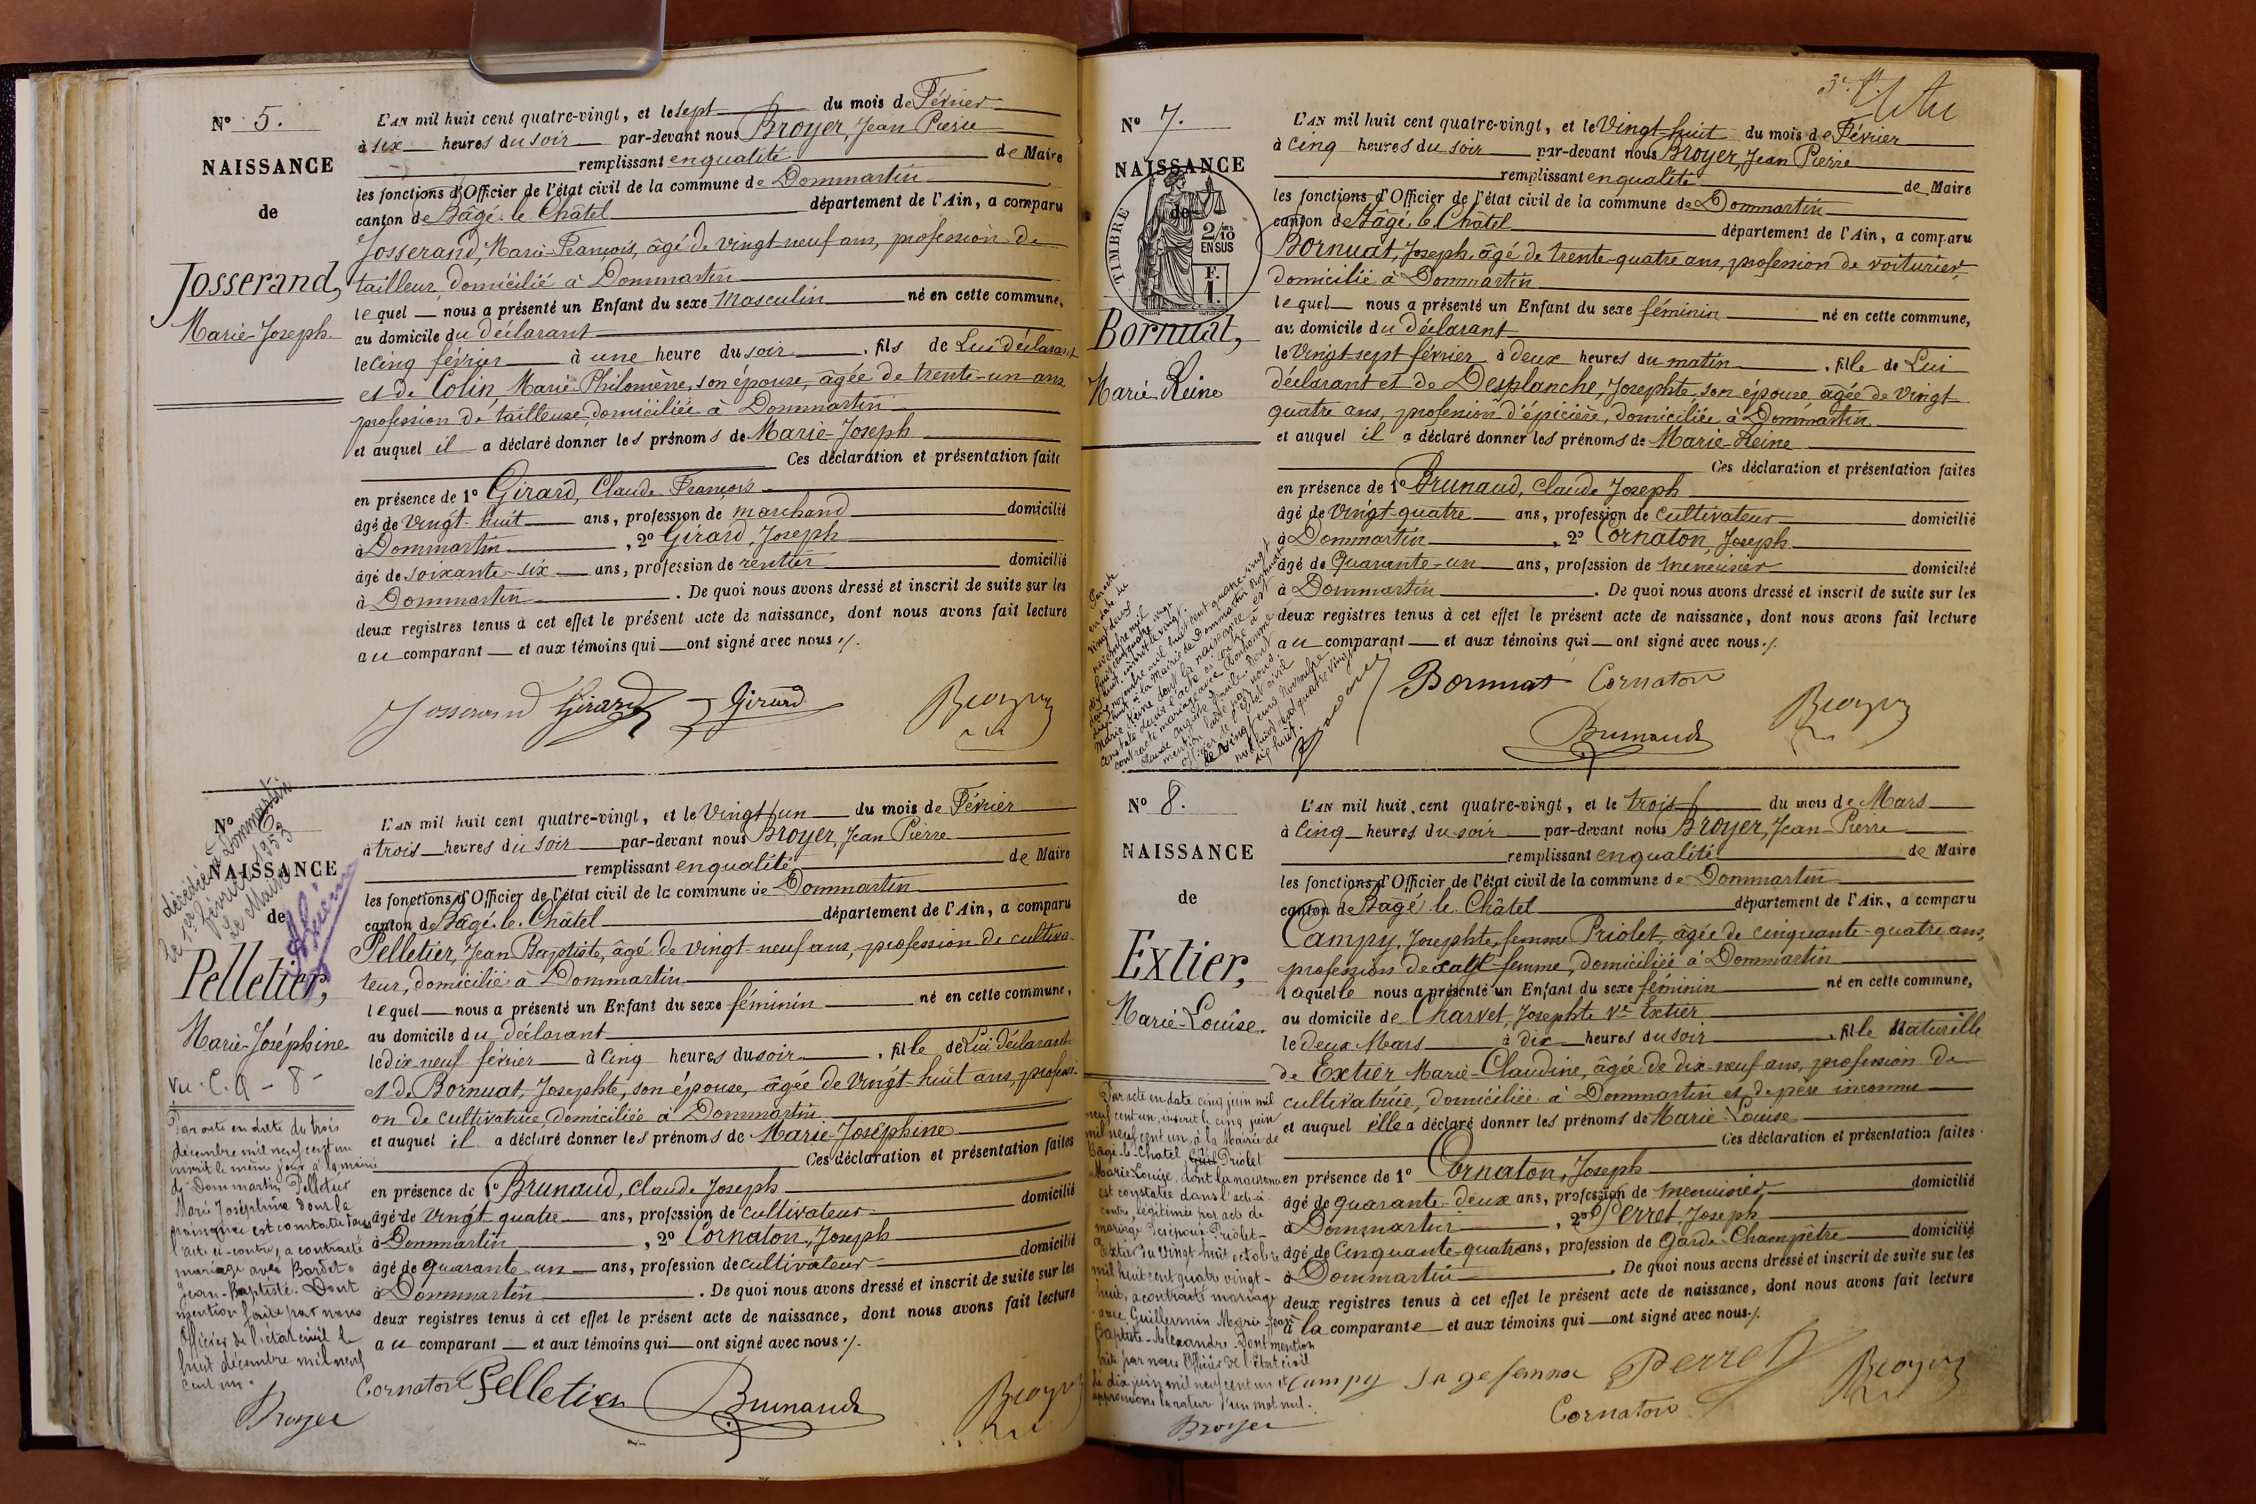 N° 5.
NAISSANCE
de
Josserand,
Marie-Joseph.
L'AN mil huit cent quatre-vingt, et le sept du mois de Février
à six heures du soir par-devant nous Broyer, Jean Pierre
remplissant en qualité de Maire
les fonctions d'Officier de l'état civil de la commune de Dommartin
canton de Bâgé-le-Châtel département de l'Ain, a comparu
Josserand, Marie-François, âgé de vingt-neuf ans, profession de
tailleur, domicilié à Dommartin
lequel nous a présenté un Enfant du sexe masculin né en cette commune,
au domicile du déclarant
le cinq février à une heure du soir, fils de Lui déclarant
et de Colin, Marie-Philomène, son épouse, âgée de trente-un ans,
profession de tailleuse, domiciliée à Dommartin
et auquel il a déclaré donner les prénoms de Marie-Joseph
Ces déclaration et présentation faites
en présence de 1° Girard, Claude François
âgé de vingt-huit ans, profession de marchand domicilié
à Dommartin, 2° Girard, Joseph
âgé de soixante-six ans, profession de rentier domicilié
à Dommartin. De quoi nous avons dressé et inscrit de suite sur les
deux registres tenus à cet effet le présent acte de naissance, dont nous avons fait lecture
au comparant et aux témoins qui ont signé avec nous ./.
Josserand Girard Girard Broyer
N° 6.
décédée à Dommartin
le 1er février 1953
le Maire
NAISSANCE
de
Pelletier,
Marie-Joséphine
Vu. C. 9 - 8 -
Par acte en date du trois
décembre mil neuf cent un
inscrit le même jour à la mairie
de Dommartin, Pelletier
Marie Joséphine dont la
naissance est constatée dans
l'acte ci-contre, a contracté
mariage avec Bardet
Jean-Baptiste. Dont
mention faite par nous
Officier de l'état civil le
huit décembre mil neuf
cent un.
Broyer
L'AN mil huit cent quatre-vingt, et le Vingt-un du mois de Février
à trois heures du soir par-devant nous Broyer, Jean Pierre
remplissant en qualité de Maire
les fonctions d'Officier de l'état civil de la commune de Dommartin
canton de Bâgé-le-Châtel département de l'Ain, a comparu
Pelletier, Jean Baptiste, âgé de vingt-neuf ans, profession de cultiva-
teur, domicilié à Dommartin
lequel nous a présenté un Enfant du sexe féminin né en cette commune,
au domicile du déclarant
le dix-neuf février à cinq heures du soir, fille de Lui déclarant
et de Bornuat, Josephte, son épouse, âgée de vingt huit ans, professi-
on de cultivatrice, domiciliée à Dommartin
et auquel il a déclaré donner les prénoms de Marie-Joséphine
Ces déclaration et présentation faites
en présence de 1° Brunaud, Claude Joseph
âgé de vingt-quatre ans, profession de cultivateur domicilié
à Dommartin, 2° Cornaton, Joseph
âgé de quarante-un ans, profession de cultivateur domicilié
à Dommartin. De quoi nous avons dressé et inscrit de suite sur les
deux registres tenus à cet effet le présent acte de naissance, dont nous avons fait lecture
au comparant et aux témoins qui ont signé avec nous ./.
Cornaton Pelletier Brunaud Broyer
N° 7.
NAISSANCE
de
TIMBRE
2/10
EN SUS
F.
1.
Bornuat,
Marie-Reine
L'AN mil huit cent quatre-vingt, et le Vingt-huit du mois de Février
à cinq heures du soir par-devant nous Broyer, Jean Pierre
remplissant en qualité de Maire
les fonctions d'Officier de l'état civil de la commune de Dommartin
canton de Bâgé-le-Châtel département de l'Ain, a comparu
Bornuat, Joseph, âgé de trente-quatre ans, profession de voiturier,
domicilié à Dommartin
lequel nous a présenté un Enfant du sexe féminin né en cette commune,
au domicile du déclarant
le Vingt-sept février à deux heures du matin, fille de Lui
déclarant et de Desplanche, Josephte, son épouse, âgée de vingt-
quatre ans, profession d'épicière, domiciliée à Dommartin
et auquel il a déclaré donner les prénoms de Marie-Reine
Ces déclaration et présentation faites
en présence de 1° Brunaud, Claude Joseph
âgé de vingt-quatre ans, profession de cultivateur domicilié
à Dommartin, 2° Cornaton, Joseph
âgé de Quarante-un ans, profession de menuisier domicilié
à Dommartin. De quoi nous avons dressé et inscrit de suite sur les
deux registres tenus à cet effet le présent acte de naissance, dont nous avons fait lecture
au comparant et aux témoins qui ont signé avec nous ./.
Bornuat Cornaton
Brunaud Broyer
N° 8.
NAISSANCE
de
Extier,
Marie-Louise.
Par acte en date cinq juin mil
neuf cent un, inscrit le cinq juin
mil neuf cent un, à la Mairie de
Bâgé-le-Châtel Priolet
Marie Louise, dont la naissance
est constatée dans l'acte ci-
contre, légitimée par acte de
mariage Priolet-
Extier du vingt-huit octobre
mil huit cent quatre vingt-
huit, a contracté mariage
avec Guillermin Marie-Jean
Baptiste-Alexandre. Dont mention
faite par nous Officier de l'état civil
le dix juin mil neuf cent un et
approuvons la rature d'un mot nul.
Broyer
L'AN mil huit cent quatre-vingt, et le trois du mois de Mars
à cinq heures du soir par-devant nous Broyer, Jean-Pierre
remplissant en qualité de Maire
les fonctions d'Officier de l'état civil de la commune de Dommartin
canton de Bâgé-le-Châtel département de l'Ain, a comparu
Campy, Josephte, femme Priolet, âgée de cinquante-quatre ans,
profession de sage-femme, domiciliée à Dommartin
laquelle nous a présenté un Enfant du sexe féminin né en cette commune,
au domicile de Charvet, Josephte Ve Extier
le deux Mars à dix heures du soir, fille Naturelle
de Extier Marie-Claudine, âgée de dix-neuf ans, profession de
cultivatrice, domiciliée à Dommartin et de père inconnu
et auquel elle a déclaré donner les prénoms de Marie Louise
Ces déclaration et présentation faites
en présence de 1° Cornaton, Joseph
âgé de quarante-deux ans, profession de menuisier domicilié
à Dommartin, 2° Perret, Joseph
âgé de Cinquante-quatre ans, profession de Garde-Champêtre domicilié
à Dommartin. De quoi nous avons dressé et inscrit de suite sur les
deux registres tenus à cet effet le présent acte de naissance, dont nous avons fait lecture
à la comparante et aux témoins qui ont signé avec nous ./.
Campy sage femme Perret Broyer
Cornaton